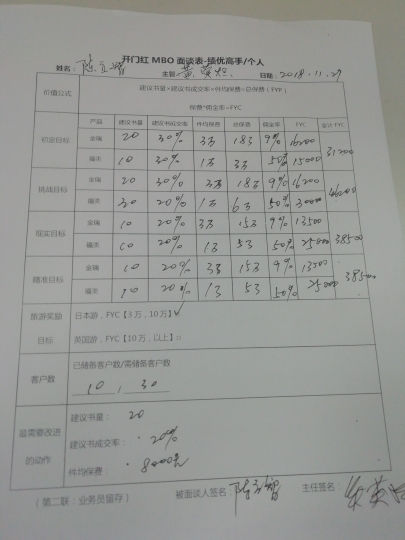 开门红 MBO 面谈表-绩优高手/个人
姓名： 主管： 日期：2018.11.27
价值公式 建议书量×建议书成交率×件均保费=总保费（FYP）
保费*佣金率=FYC
产品 建议书量 建议书成交率 件均保费 总保费 佣金率 FYC 合计 FYC
初定目标 金瑞 20 30% 3万 18万 9% 16200 31200
福夫 10 30% 1万 3万 50% 15000
挑战目标 金瑞 20 30% 3万 18万 9% 16200 46200
福夫 30 20% 1万 6万 50% 30000
现实目标 金瑞 10 20% 3万 15万 9% 13500 38500
福夫 10 20% 1万 5万 50% 25000
精准目标 金瑞 10 20% 3万 15万 9% 13500 38500
福夫 10 20% 1万 5万 50% 25000
旅游奖励 日本游，FYC【3万，10万】✓
目标 英国游，FYC【10万，以上】□
客户数 已储备客户数/需储备客户数
10 , 30
最需要改进的动作 建议书量： 20
建议书成交率： 20%
件均保费： 8000元
（第二联：业务员留存） 被面谈人签名： 主任签名：